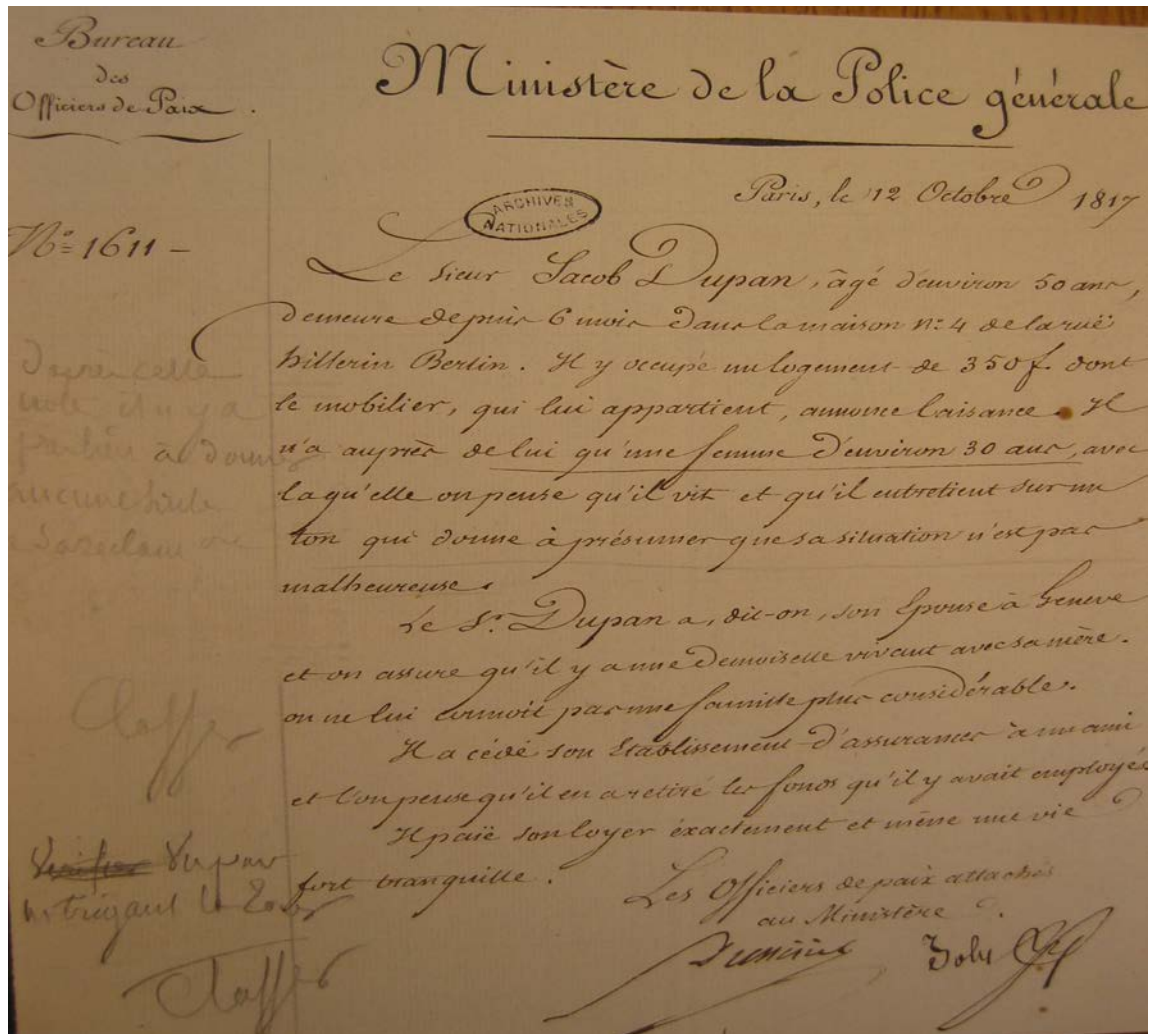 Bureau
des
Officiers de Paix.
Ministère de la Police générale
Paris, le 12 Octobre 1817
ARCHIVES
NATIONALES
N.º 1611 -
Le Sieur Jacob Dupan, âgé d'environ 50 ans,
demeure depuis 6 mois dans la maison n.º 4 de la rue
hillerin Bertin. Il y occupe un logement de 350 f. dont
le mobilier, qui lui appartient, annonce l'aisance. Il
n'a auprès de lui qu'une femme d'environ 30 ans, avec
laqu'elle on pense qu'il vit et qu'il entretient sur un
ton qui donne à présumer que sa situation n'est pas
malheureuse.
Le S.r Dupan a, dit-on, son Epouse à Geneve
et on assure qu'il y a une Demoiselle vivant avec sa mère.
on ne lui connoit pas une famille plus considérable.
Il a cédé son Etablissement d'assurances à un ami
et l'on pense qu'il en a retiré les fonds qu'il y avait employés
Il paie son loyer éxactement et mène une vie
fort tranquille.
Les Officiers de paix attachés
au Ministère
d'après cette
note, il n'y a
pas lieu à donner
aucune suite
Classer
Vu par
Classer
Joly